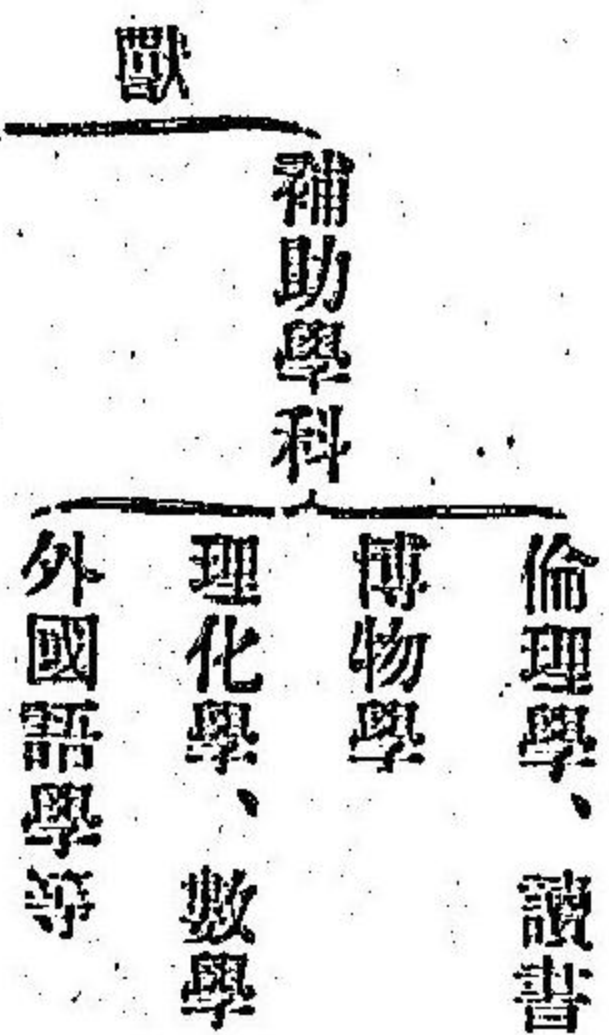 補助學科
倫理學、讀書
博物學
理化學、數學
外國語學等
獸